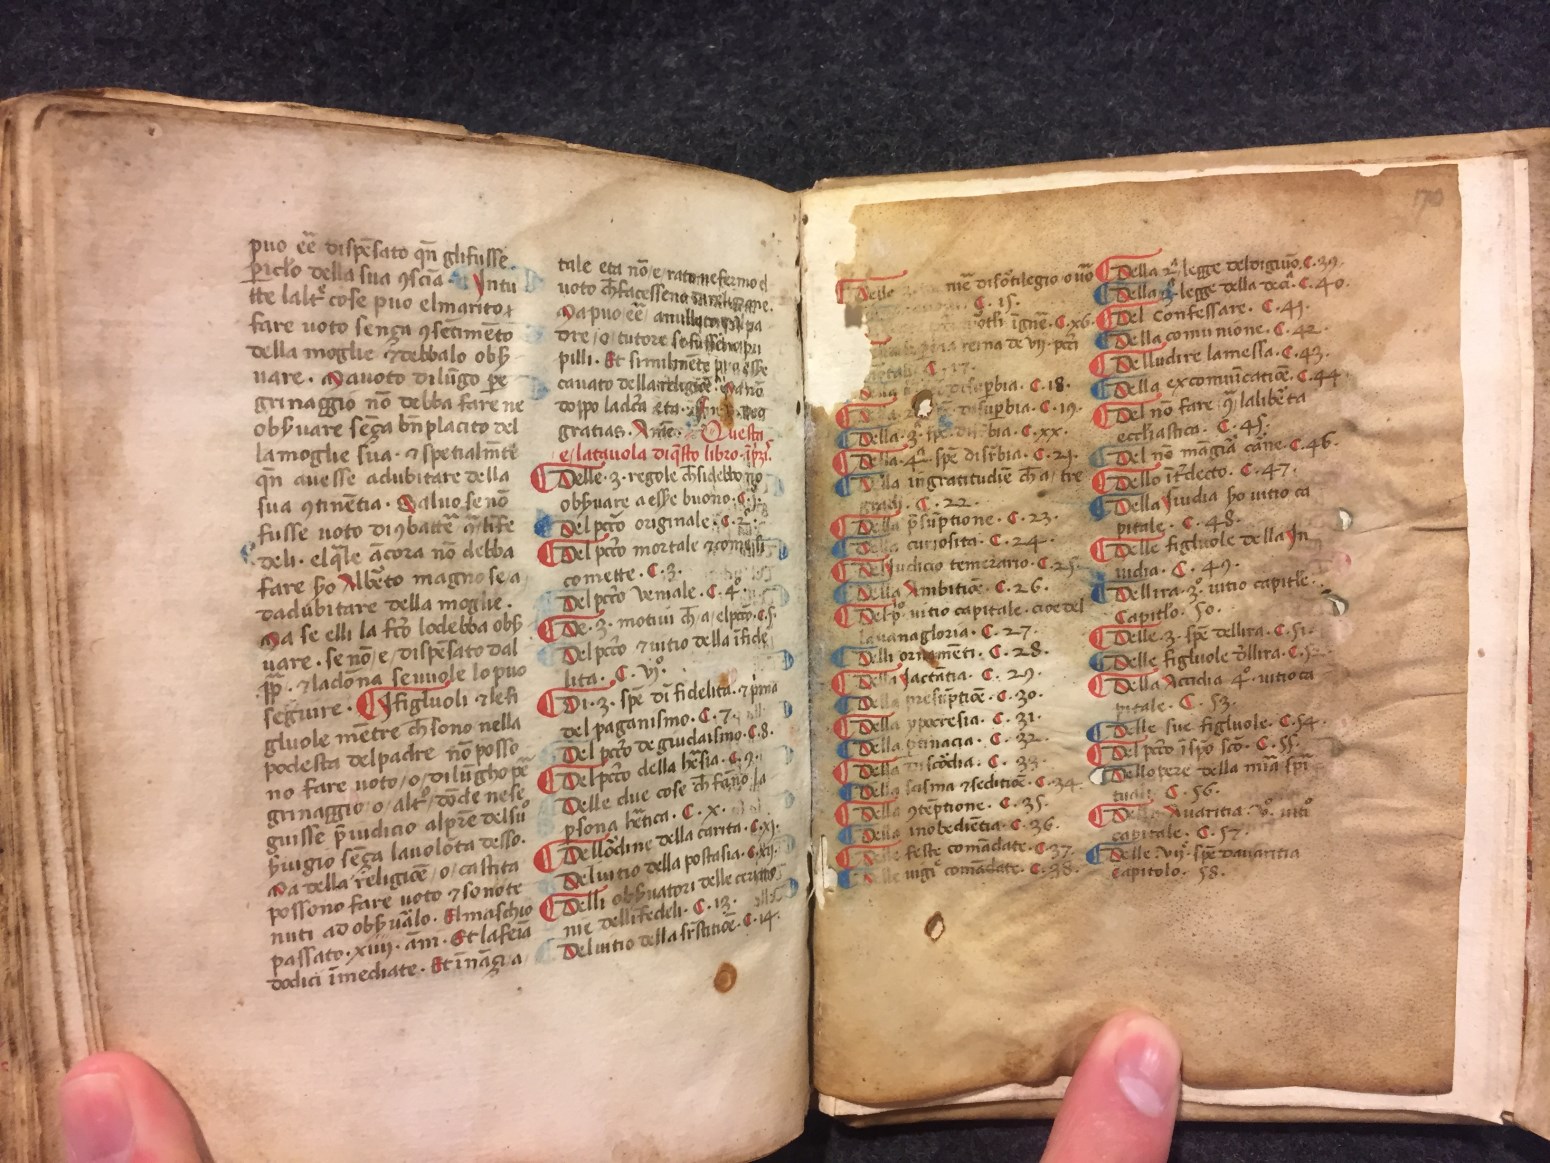 puo eē dispēsato qn̄ glifusse
piclo della sua ꝯsciā Intu
tte laltͤ cose puo elmarito
fare voto sença ꝯsētimēto
della moglie ⁊ debbalo obẜ
uare. Mavoto dilūgo pe
grinaggio nō debba fare ne
obẜuare sēça bn̄placito del
la moglie sua. ⁊ spetialmēte
qn̄ auesse adubitare della
sua ꝯtinētia. Saluo se nō
fusse voto di
deli. elq̄le ācora nō debba
fare Alberto magno se a
dadubitare della moglie.
Ma se elli la fcō lodebba obẜ
uare. se nō e dispēsato dal
pp̄. ⁊ ladōna seuuole lo puo
seguire. I figluoli ⁊ le fi
gluole mētre ch̄ sono nella
podesta del padre nō posso
no fare voto /o/ di lūgho pē
grinaggio /o/ altͦ dōde ne se
guisse p̄iudicio alpr̄e delsuͦ
ẜuigio sēça lauolōta desso.
Ma della religiōe /o/ castita
possono fare voto ⁊ sono te
nuti ad obẜuālo. El maschio
passato. xiiii. āni. Et la feīa
dodici īmediate. Et īnāçi a
tale eta nō e rato ne fermo el
voto ch̄ facesseno
Ma puo eē anullato pa
dre /o/ tutore se fusseno pu
pilli. Et similmēte puo esse
cauato della religiōe
doppo la dcā eta. Deo
gratias. Amē. Questa
e la tauola di q̄sto libro.
Delle .3. regole ch̄ si debbono
obẜuare a essere buono. C. 1.
Del pcc̄o originale. C. 2.
Del pcc̄o mortale ⁊ come si
comette. C. 3.
Del pcc̄o veniale. C. 4.
De. 3. motiui ch̄ a elpcc̄o. C. 5.
Del pcc̄o ⁊ uitio della īfide
lita. C. vj.
Di. 3. spē di fidelita. ⁊ p̄ma
del paganismo. C. 7.
Del pcc̄o de giudaismo. C. 8.
Del pcc̄o della hēsia. C. 9.
Delle due cose ch̄ fāno la
ꝑsona hētica. C. x.
Dellordine della carita. C. xi.
Deluitio della postasia. C. xii.
Delli obẜuatori delle cerimo
nie dellīfedeli. C. 13.
Deluitio della sr̄stitiōe. C. 14.
170
Delle nīe disortilegio
C. 15.
C. xv6.
reina de vij. pcc̄i
C. 17.
disupbia. C. 18.
Della disupbia. C. 19.
Della .3. spē disupbia. C. xx.
Della .4. spē disupbia. C. 21.
Della ingratitudiē ch̄ a tre
gradi. C. 22.
Della p̄sūptione. C. 23.
Della curiosita. C. 24.
Deljudicio temerario. C. 25.
Della Ambitiōe. C. 26.
Del pͦ. uitio capitale. cioe del
lauanagloria. C. 27.
Delli ornamēti. C. 28.
Della Jactātia. C. 29.
Della presūptiōe. C. 30.
Della ypocresia. C. 31.
Della ꝑtinacia. C. 32.
Della discōdia. C. 33.
Della scisma ⁊ seditiōe. C. 34.
Della ꝯtēptione. C. 35.
Della inobediētia. C. 36.
Delle feste comādate. C. 37.
Delle uigͥ comādate. C. 38.
Della legge deldigiuno. C. 39.
Della legge della decīa. C. 40.
Del Confessare. C. 41.
Della comunione. C. 42.
Delludire lamessa. C. 43.
Della excomunicatiōe. C. 44.
Del nō fare ꝯ laliberta
ecclesiastica. C. 45.
Del nō māgiar carne. C. 46.
Dello īterdecto. C. 47.
Della Jnuidia uitio ca
pitale. C. 48.
Delle figluole della In
uidia. C. 49.
Dellira. 3. uitio capitle.
Capitlo. 50.
Delle .3. spē dellira. C. 51.
Delle figluole dellira. C. 52.
Della Acidia 4. uitio ca
pitale. C. 53.
Delle sue figluole. C. 54.
Del pcc̄o ī spū sc̄o. C. 55.
Dellopere della mīa spi
tuali. C. 56.
Della Auaritia. uitͦ
capitale. C. 57.
Delle .vij. spē dauaritia
Capitolo. 58.